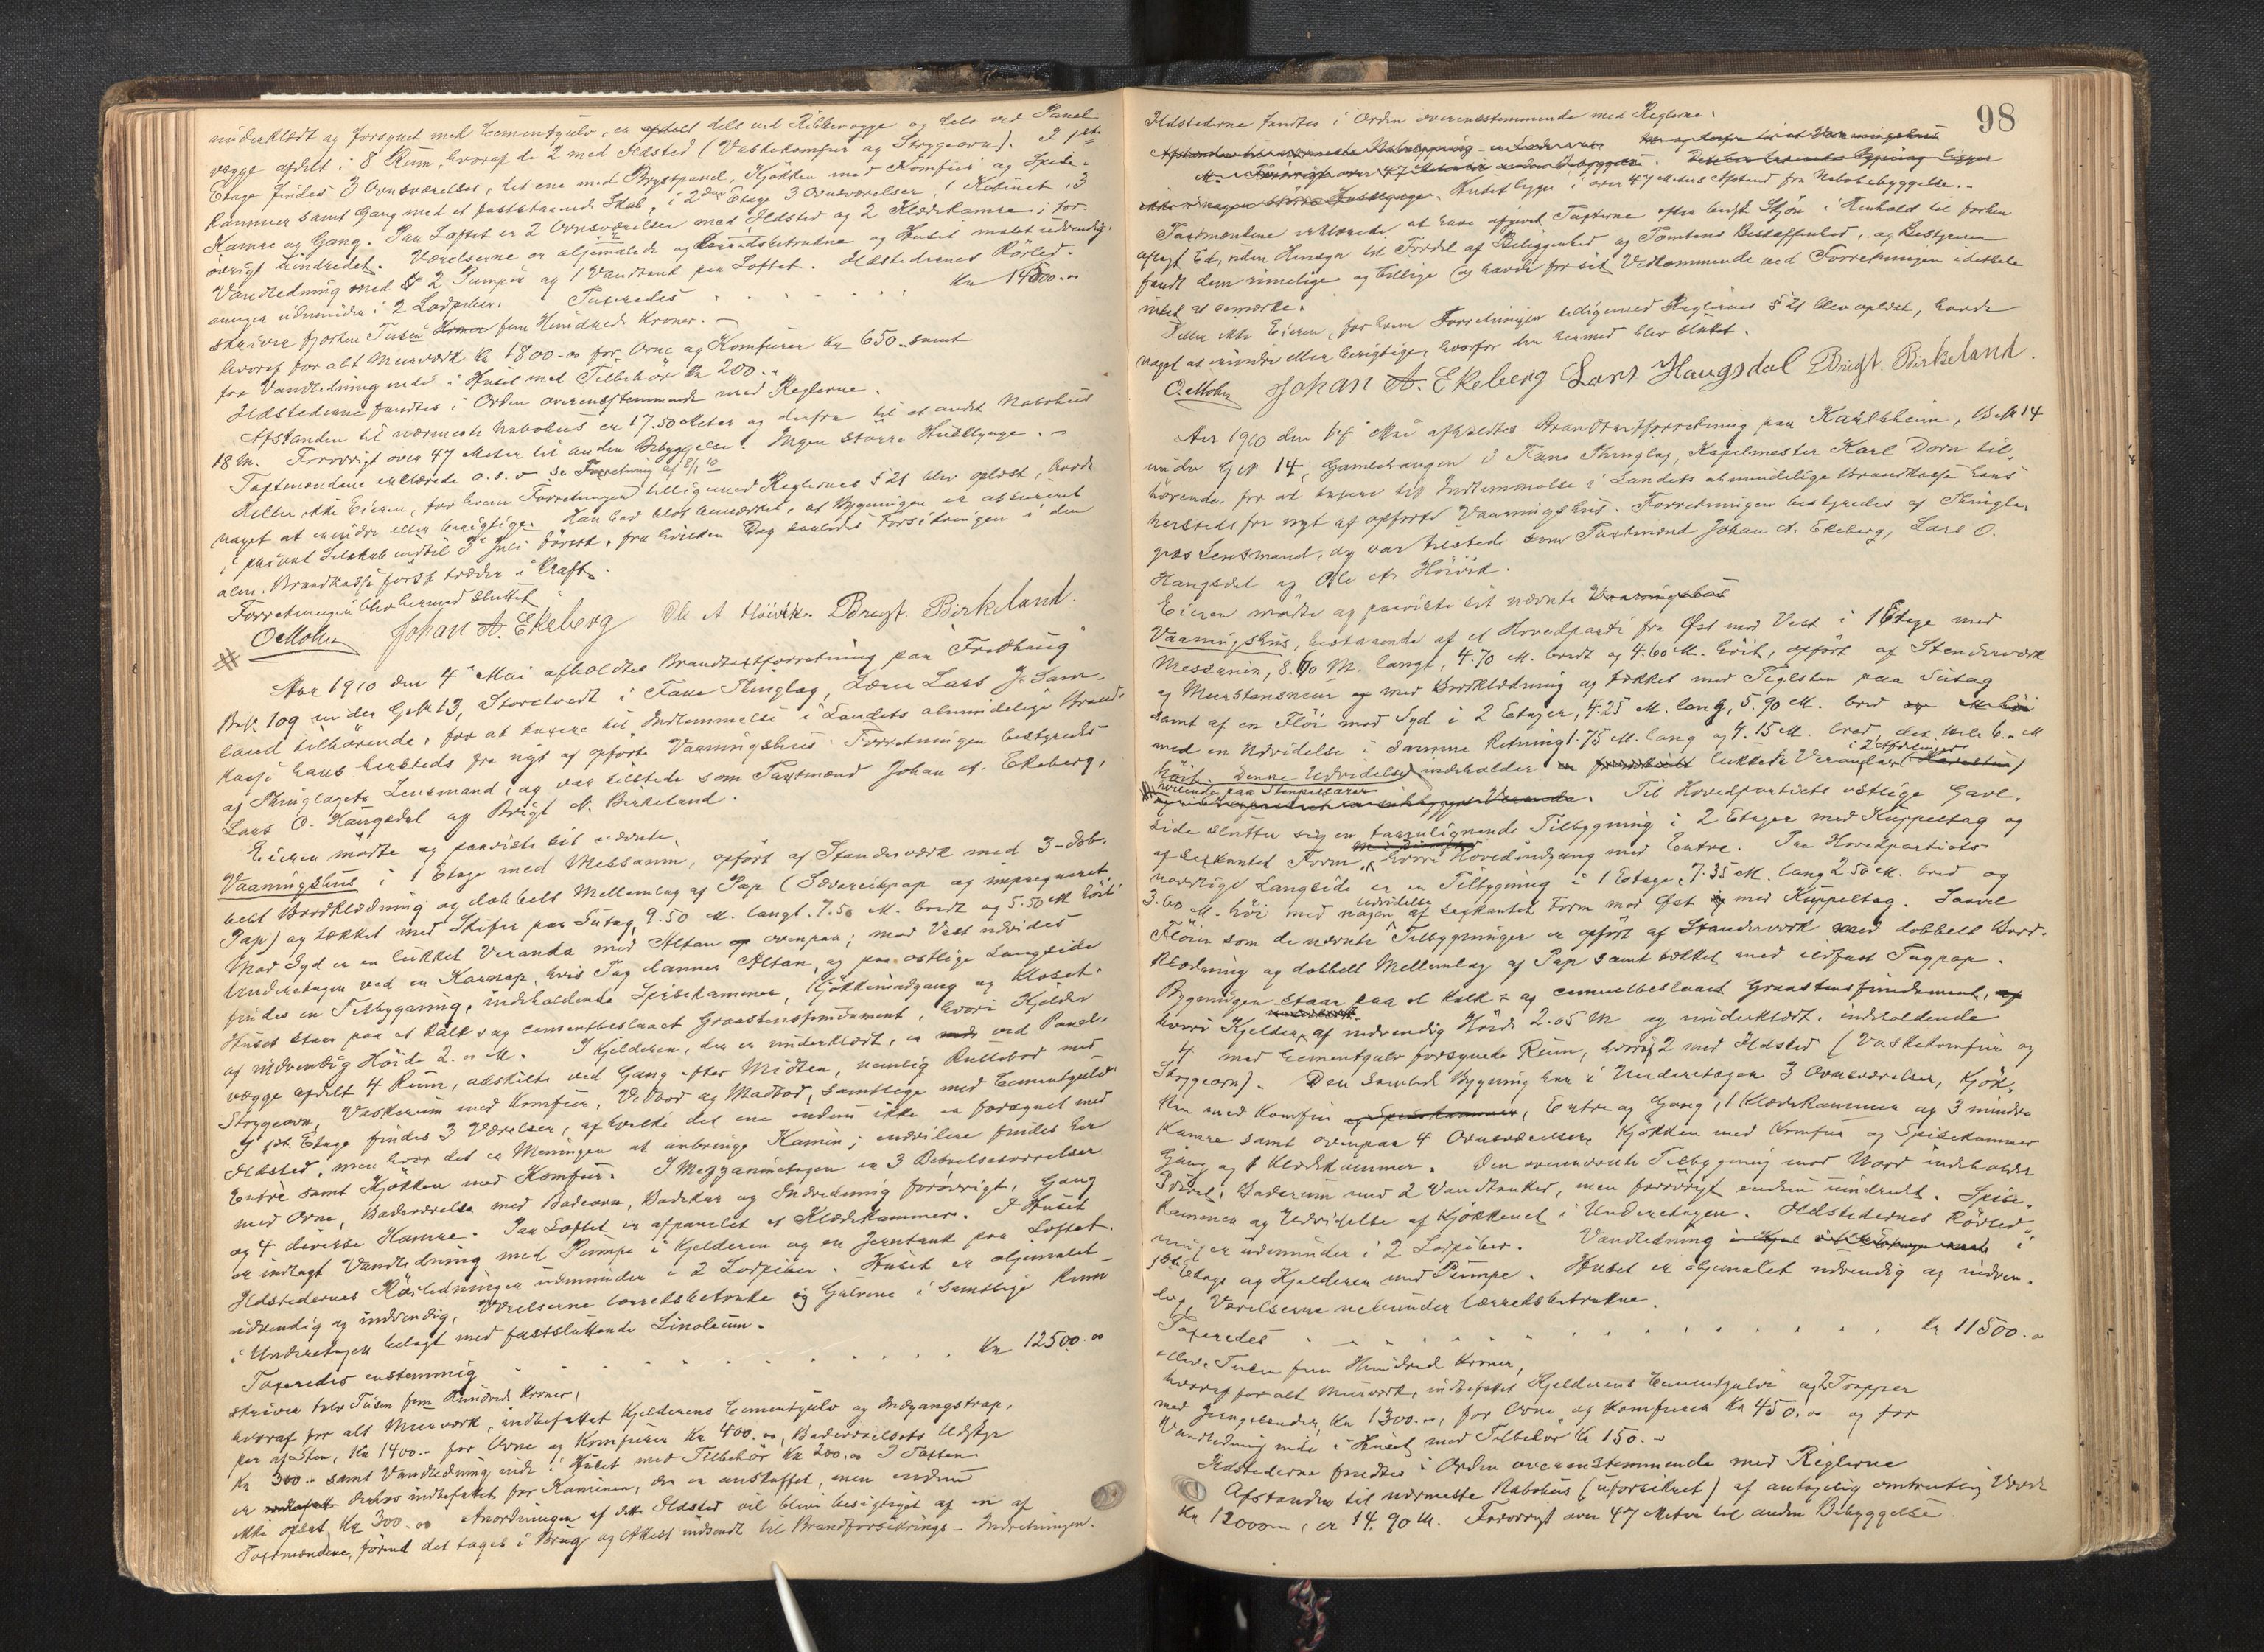 underklædt og forsynet med Cementgulv, er dels ved Ribbevægge og dels ved Panel-
vægge afdelt i 8 Rum, hvoraf de 2 med Ildsted (Vaskekomfur og Strygeovn). I 1ste
Etage findes 3 Ovnsværelser, det ene med Brystpanel, Kjøkken med Komfur og Spise-
kammer samt Gang med et faststaaende Skab, i 2den Etage 3 Ovnsværelser, 1 Kabinet, 3
Kamre og Gang. Paa Loftet er 2 Ovnsværelser med Ildsted og 2 Klædekamre, for-
øvrigt uindredet. Værelserne er oljemalede og Lærredsbetrukne og Huset malet udvendig.
Vandledning med 2 Pumper og 1 Vandtank paa Loftet. Ildstedernes Rørled-
ninger udmunder i 2 Lodpiber.
Taxeredes . . . . . . Kr 14500.00
skriver fjorten Tusen fem Hundrede Kroner. —
hvoraf for alt Murværk Kr 1800.00 for Ovne og Komfurer Kr 650.- samt
for Vandledning inde i Huset med Tilbehør Kr 200.-
Ildstederne fandtes i Orden overensstemmende med Reglerne.
Afstanden til nærmeste Nabohus er 17.50 Meter og derfra til et andet Nabohus
18 M. Forøvrigt over 47 Meter til anden Bebyggelse. Ingen større Husklynge. —
Taxtmændene erklærede o.s.v. se Forretning af
Heller ikke Eieren, for hvem Forretningen tilligemed Reglernes § 21 blev oplæst, havde
noget at erindre eller berigtige. Han bad blot bemærket, at Bygningen er assureret
i privat Selskab indtil 3die Juli førstk., fra hvilken Dag saaledes Forsikringen i den
alm. Brandkasse først træder i Kraft.
Forretningen blev hermed sluttet
O. Mohn Johan A. Ekeberg Ole A Høivik. Brigt. Birkeland.
Aar 1910 den 4de Mai afholdtes Brandtaxtforretning paa "Fredhaug"
Br№ 109 under G№ 13, Storetvedt i Fana Thinglag, Lærer Lars J.
land tilhørende, for at taxere til Indlemmelse i Landets almindelige Brand-
kasse hans hersteds fra nyt af opførte Vaaningshus. Forretningen bestyredes
af Thinglagets Lensmand, og var tilstede som Taxtmænd Johan A. Ekeberg,
Lars O. Haugsdal og Brigt N. Birkeland.
Eieren mødte og paaviste sit nævnte
Vaaningshus i 1 Etage med Messanin, opført af Stenderværk med 3-dob-
belt Bordklædning og dobbelt Mellemlag af Pap ( og imprægneret
Pap) og tækket med Skifer paa Sutag, 9.50 M. langt. 7.50 M. bredt og 5.50 M høit
Mod Syd er en lukket Veranda med Altan ovenpaa; mod Vest udvides
Underetagen ved en Karnap, hvis Tag danner Altan, og paa østlige Langside
findes en Tilbygning, indeholdende Spisekammer, Kjøkkenindgang og Kloset.
Huset staar paa et kalk- og cementbeslaaet Graastensfundament, hvori Kjelder
af indvendig Høide 2.00 M. I Kjelderen, der er underklædt, er ved Panel-
vægge afdelt 4 Rum, adskilte ved Gang efter Midten, nemlig Rullebod med
Strygeovn, Vaskerum med Komfur, Vedbod og Madbod, samtlige med Cementgulv.
I 1ste Etage findes 3 Værelser, af hvilke det ene endnu ikke er forsynet med
Ildsted, men hvor det er Meningen at anbringe Kamin; endvidere findes her
Entré samt Kjøkken med Komfur. I Mezzaninetagen er 3 Beboelsesværelser
med Ovne, Badeværelse med Badeovn, Badekar og Indredning forøvrigt, Gang
og 4 diverse Kamre. Paa Loftet er afpanelet et Klædekammer. I Huset
er indlagt Vandledning med Pumpe i Kjelderen og en Jerntank paa Loftet.
Ildstedernes Rørledninger udmunder i 2 Lodpiber. Huset er oljemalet
udvendig og indvendig, Værelserne lærredsbetrukne og Gulvene i samtlige Rum
i Underetagen belagt med fastsluttende Linoleum.
Taxeredes enstemmig . . . . . . . . Kr 12500.00
skriver tolv Tusen fem Hundrede Kroner,
hvoraf for alt Murværk, indbefattet Kjelderens Cementgulv og Indgangstrap-
per af Sten, Kr 1400.- for Ovne og Komfurer Kr 400.00, Badeværelsets Udstyr
Kr 300.- samt Vandledning inde i Huset med Tilbehør Kr 200.00 I Taxten
er derhos indbefattet for Kaminen, der er anskaffet, men endnu
ikke opsat, Kr 300.00 Anordningen af dette Ildsted vil blive besigtiget af en af
Taxtmændene, førend det tages i Brug og Attest indsendt til Brandforsikrings-Indretningen.
98
Ildstederne fandtes i Orden overensstemmende med Reglerne.
Afstanden til nærmeste Nabobygning
Forøvrigt over 47 Meter til anden Bebyggelse.
ikke i nogen større Husklynge. Huset ligger i over 47 Meters Afstand fra Nabobebyggelse. -
Taxtmændene erklærede, at have afgivet Taxterne efter bedste Skjøn i Henhold til forhen
aflagt Ed, uden Hensyn til Fordel af Beliggenhed og Tomtens Beskaffenhed, og Bestyreren
fandt dem rimelige og billige og havde for sit Vedkommende ved Forretningen idethele
intet at bemærke.
Heller ikke Eieren, for hvem Forretningen tilligemed Reglernes § 21 blev oplæst, havde
noget at erindre eller berigtige, hvorfor den hermed blev sluttet.
O. Mohn Johan A. Ekeberg Lars Haugsdal Brigt. Birkeland.
Aar 1910 den Mai afholdtes Brandtaxtforretning paa Karlsheim, B№ 14
under G№ 14, Gamlehaugen i Fana Thinglag, Kapelmester Karl Dorn til-
hørende, for at taxere til Indlemmelse i Landets almindelige Brandkasse hans
hersteds fra nyt af opførte Vaaningshus. Forretningen bestyredes af Thingla-
gets Lensmand, og var tilstede som Taxtmænd Johan A. Ekeberg, Lars O.
Haugsdal og Ole A. Høivik.
Eieren mødte og paaviste sit nævnte Vaaningshus
Vaaningshus, bestaaende af et Hovedparti fra Øst mod Vest i 1 Etage med
Messanin, 8.70 M. langt, 4.70 M. bredt og 4.60 M. høit, opført af Stenderværk
og Murstensmur med Bordklædning og tækket med Teglsten paa Sutag
samt af en Fløi mod Syd i 2 Etager, 4.25 M. lang, 5.90 M. bred
med en Udvidelse i samme Retning 1.75 M. lang og 4.15 M. bred, det Hele 6.- M
høit. Denne Udvidelse indeholder lukkede Verandaer i 2 Afdelinger
hvilende paa Stenpillarer. Til Hovedpartiets østlige Gavl-
side slutter sig en taarnlignende Tilbygning i 2 Etager med Kuppeltag og
af sexkantet Form, hvori Hovedindgang med Entre. Paa Hovedpartiets
nordlige Langside er en Tilbygning i 1 Etage, 7.35 M. lang 2.50 M. bred og
3.60 M. høi med nogen Udvidelse af sexkantet Form mod Øst med Kuppeltag. Saavel
Fløien som de nævnte Tilbygninger er opført af Stenderværk med dobbelt Bord-
klædning og dobbelt Mellemlag af Pap samt tækket med ildfast Tagpap.
Bygningen staar paa et kalk- og cementbeslaaet Graastensfundament,
hvori Kjelder af indvendig Høide 2.05 M og underklædt, indeholdende
4 med Cementgulv forsynede Rum, hvoraf 2 med Ildsted (Vaskekomfur og
Strygeovn). Den samlede Bygning har i Underetagen 3 Ovnsværelser, Kjøk-
ken med Komfur og Spisekammer, Entre og Gang, 1 Klædekammer og 3 mindre
Kamre samt ovenpaa 4 Ovnsværelser, Kjøkken med Komfur og Spisekammer
Gang og 1 Klædekammer. Den ovennævnte Tilbygning mod Nord indeholder
, Baderum med 2 Vandtanker, men forøvrigt endnu uindredet. Spise-
kammer og Udvidelse af Kjøkkenet i Underetagen. Ildstedernes Rørled-
ninger udmunder i 2 Lodpiber. Vandledning i
1ste Etage og Kjelderen med Pumpe. Huset er oljemalet udvendig og indven-
dig, Værelserne nedunder lærredsbetrukne.
Taxeredes . . . . . . . . . . . . Kr 11500.00
elleve Tusen fem Hundrede Kroner,
hvoraf for alt Murværk, indbefattet Kjelderens Cementgulv og 2 Trapper
med Jerngelænder, Kr 1300.00, for Ovne og Komfurer Kr 450.00 og for
Vandledning inde i Huset med Tilbehør Kr 150.-
Ildstederne fandtes i Orden overensstemmende med Reglerne
Afstanden til nærmeste Nabohus (uforsikret) af antagelig omtrentlig Værdi
Kr 12000.-, er 14.90 M. Forøvrigt over 47 Meter til anden Bebyggelse.